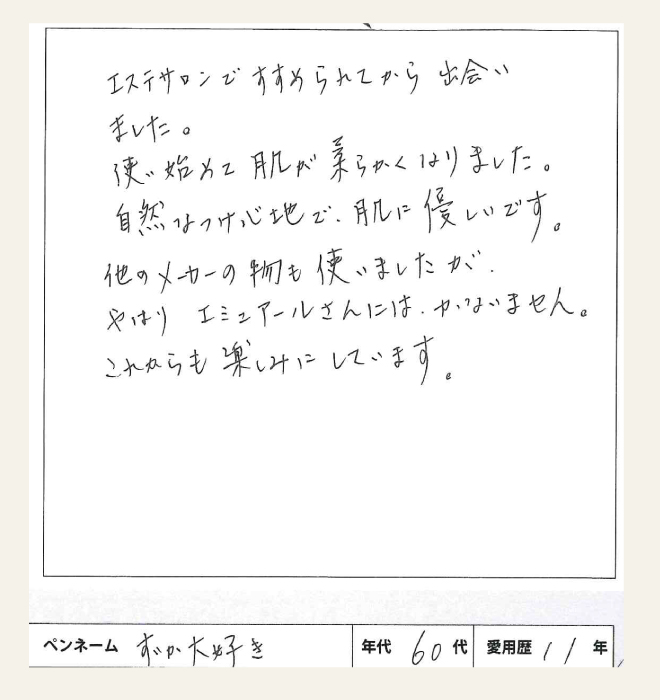 エステサロンですすめられてから 出会い
ました。
使い始めて 肌が柔らかくなりました。
自然なつけ心地で、肌に優しいです。
他のメーカーの物も使いましたが、
やはり エミュアールさんには、かないません。
これからも楽しみにしています。
ペンネーム ずか大好き 年代 60代 愛用歴 11年